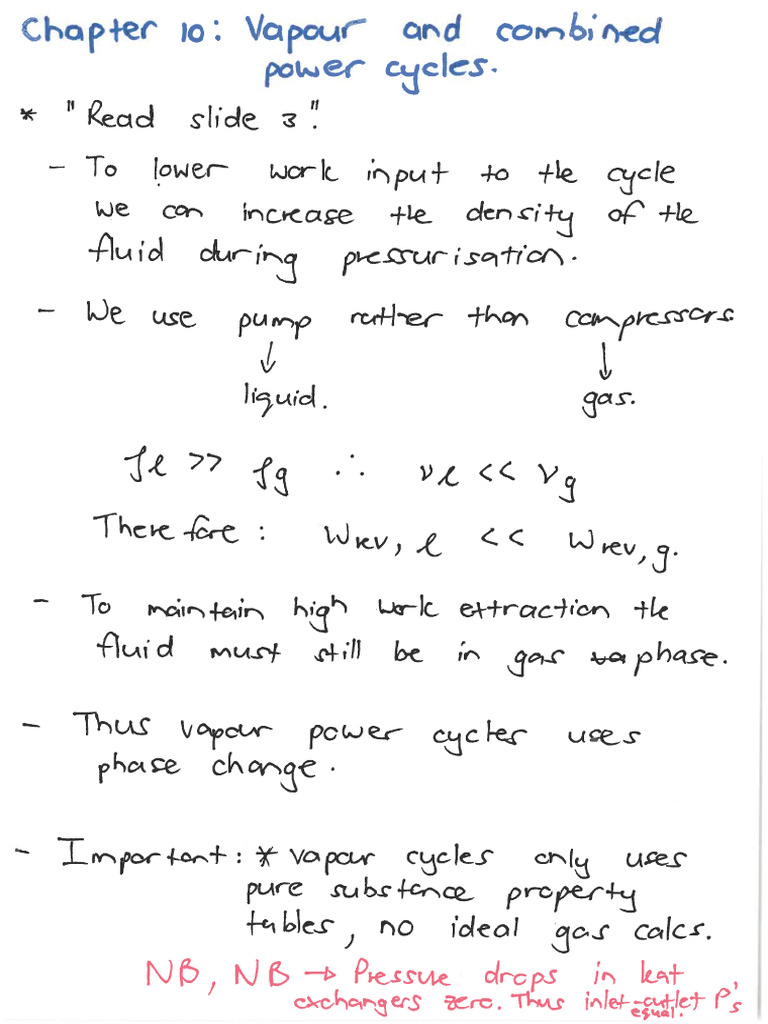 Chapter 10: Vapour and combined
power cycles.
* "Read slide 3".
- To lower work input to the cycle
we can increase the density of the
fluid during pressurisation.
- We use pump rather than compressors.
↓ ↓
liquid. gas.
ρℓ >> ρg ∴ νℓ << νg
Therefore: Wrev, ℓ << Wrev, g.
- To maintain high work extraction the
fluid must still be in gas phase.
- Thus vapour power cycles uses
phase change.
- Important: * vapour cycles only uses
pure substance property
tables, no ideal gas calcs.
NB, NB → Pressure drops in heat
exchangers zero. Thus inlet-outlet P's
equal.